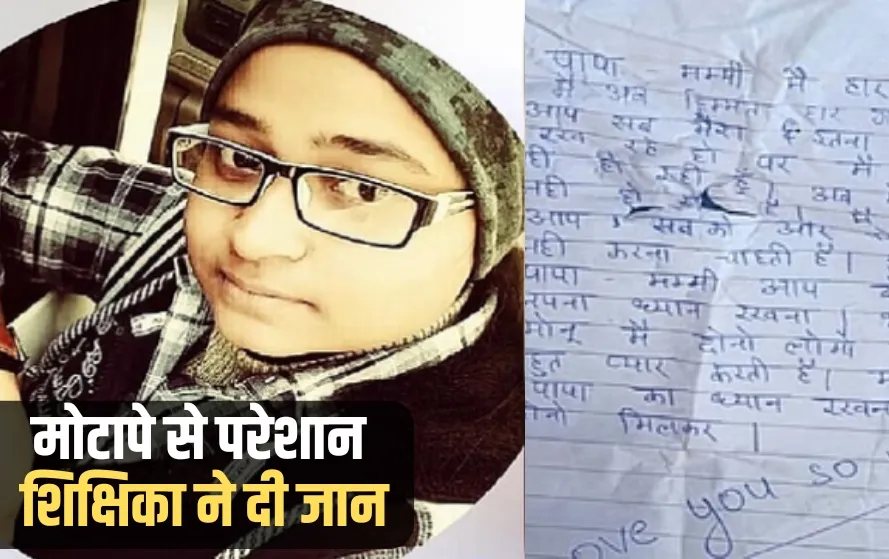 मोटापे से परेशान
शिक्षिका ने दी जान
पापा - मम्मी मै हार
मै अब हिम्मत हार
आप सब मेरा इतना
रख रहे हो पर मै
ही हो रही है। अब
नही हो है।
आप सब को और
नही करना चाहती है।
पापा - मम्मी आप
अपना ध्यान रखना।
मोनू मै दोनो लोगो
हुत प्यार करती है।
पापा का ध्यान रखन
दोनो मिलकर।
ove you so